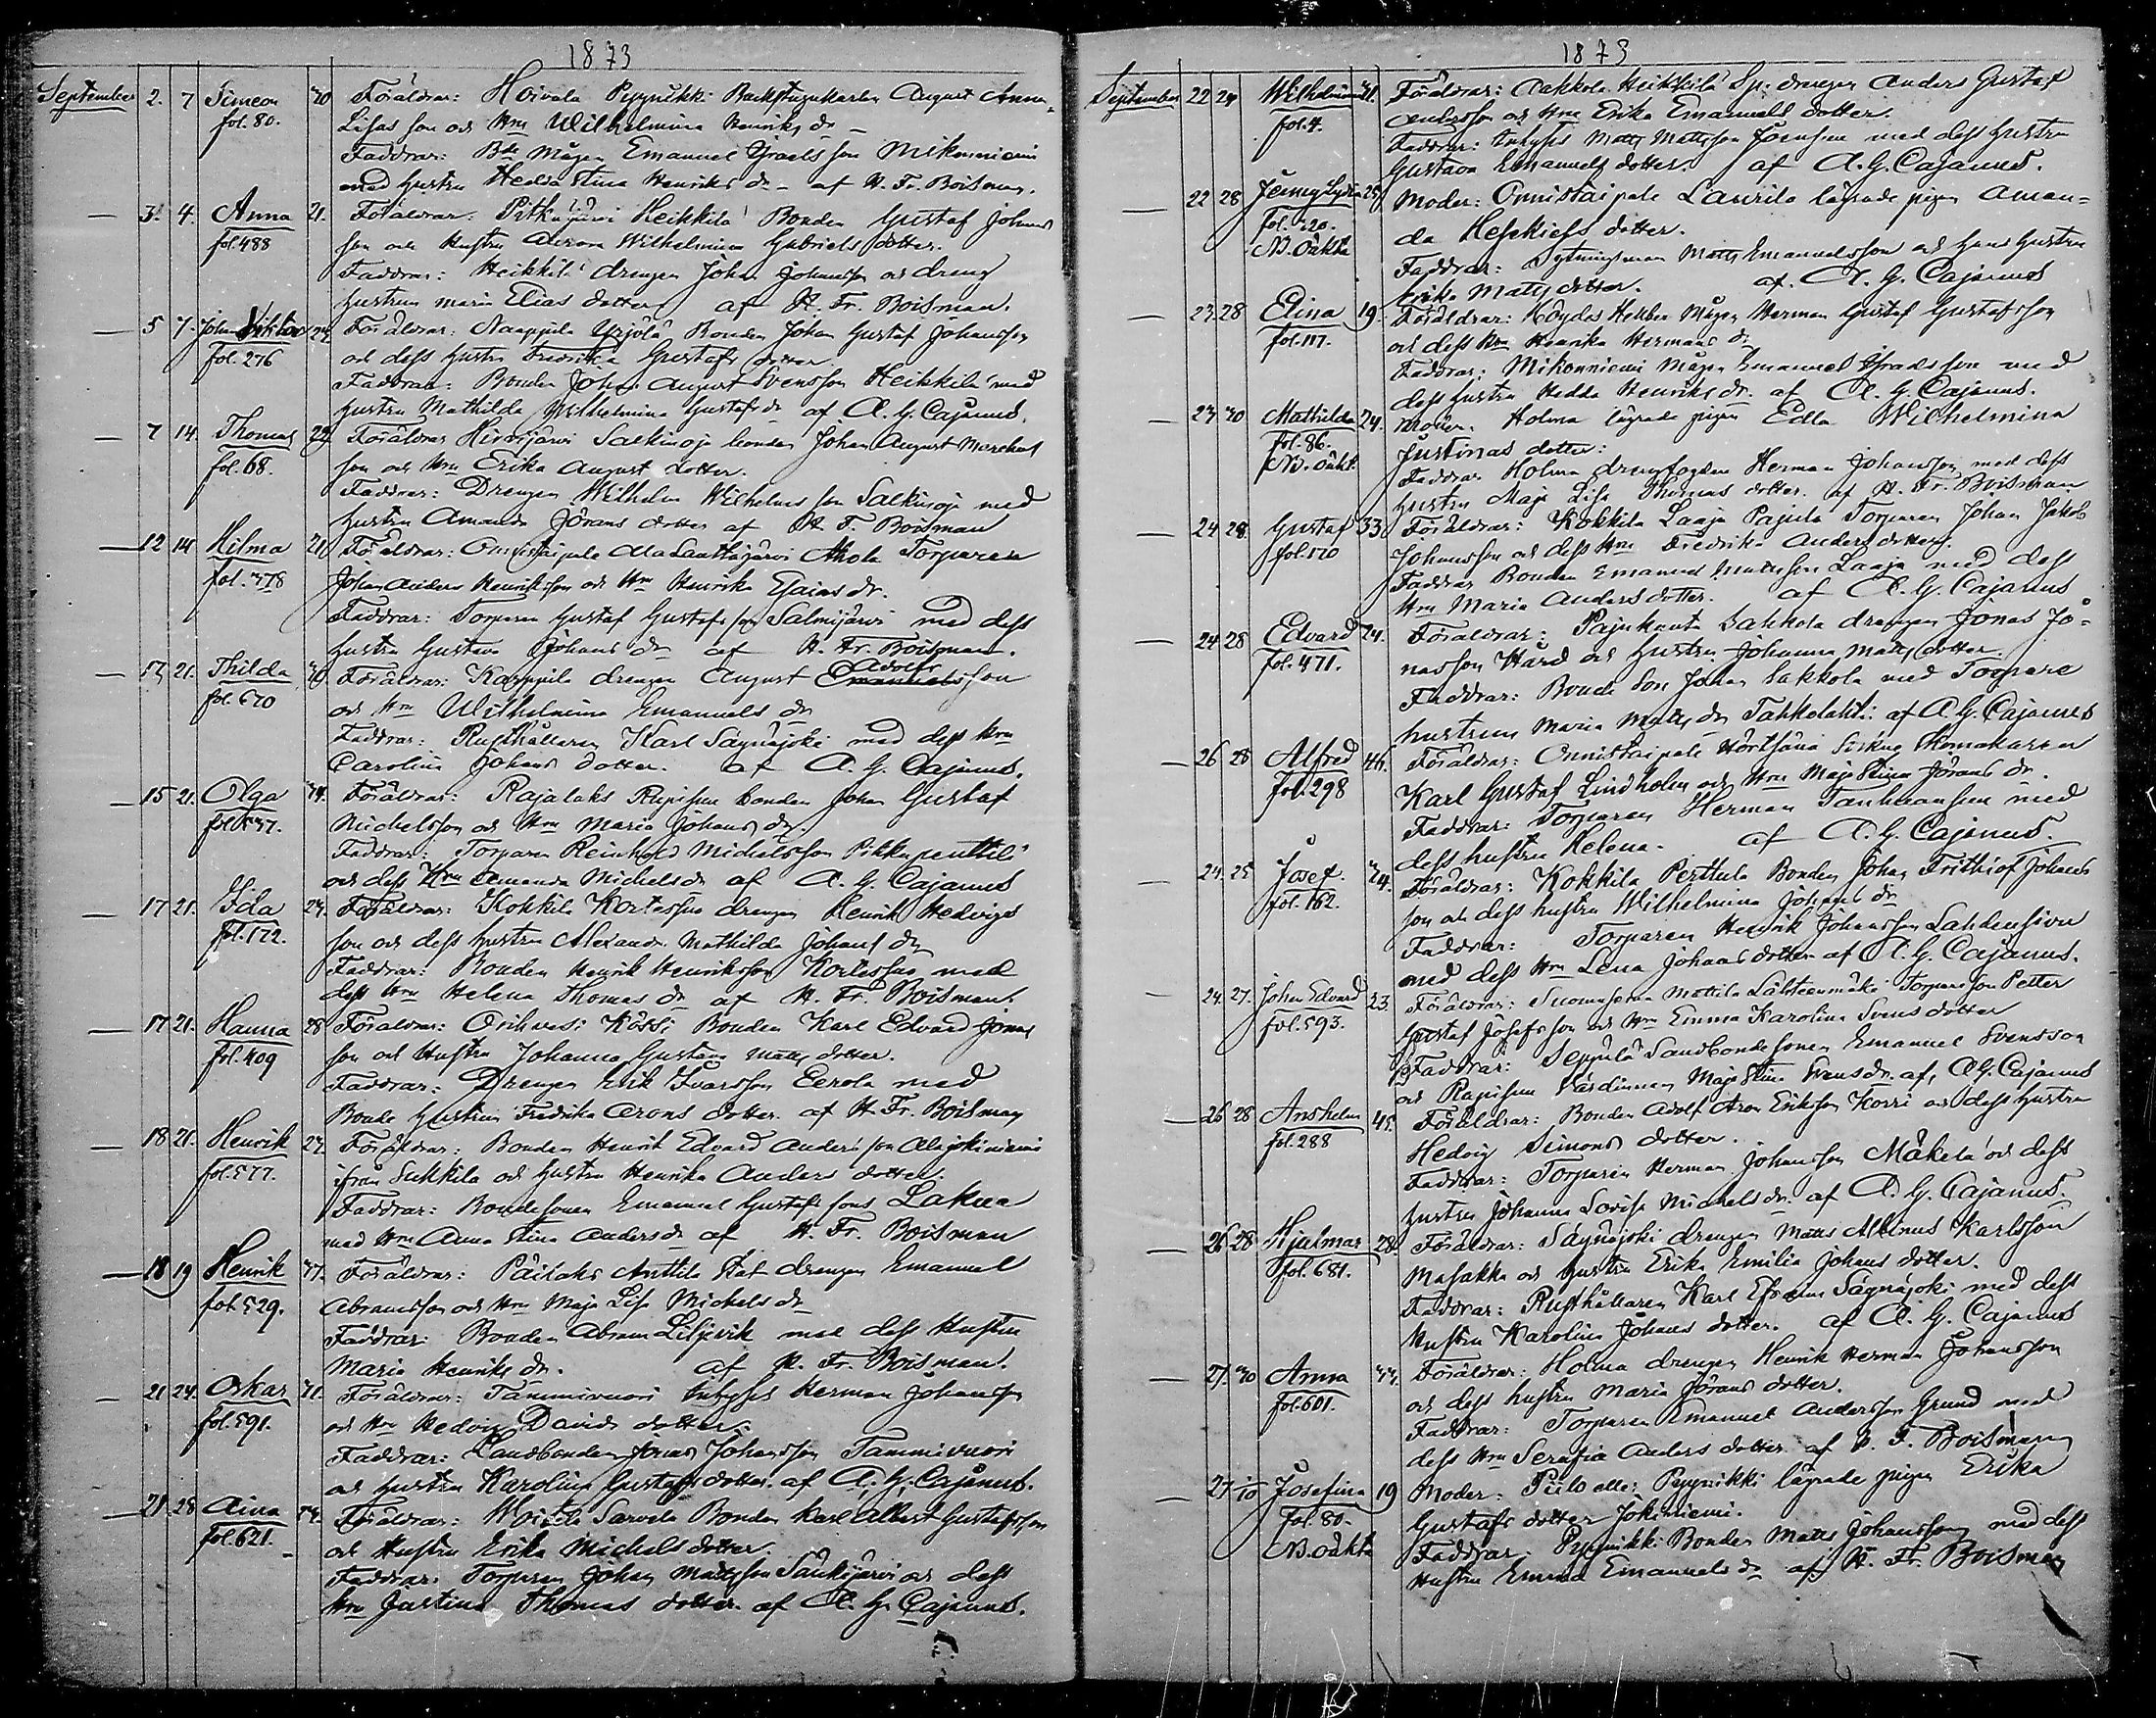 1873
September 2. 7 Simeon 30 Föräldrar: Hoivala Pyynikki Backstugukarlen August Anna
fol. 80. Lisas son och Hru Wilhelmina Henriks dr
Faddrar: Bde Mågen Emanuel Israels son Mikonniemi
med hustru Hedda Stina Henriks dr af H. Fr. Boisman.
— 3. 4. Anna 21. Föräldrar: Pitkäjärvi Heikkilä Bonden Gustaf Johans
fol. 488 son och Hustru Aurora Wilhelmina Gabriels dotter.
Faddrar: Heikkilä drengen Johan Johansson och dreng
hustrun Maria Elias dotter af H. Fr. Boisman.
— 5 7. Johan Viktor 24. Föräldrar: Naappila Yrjölä Bonden Johan Gustaf Johansson
fol. 276 och dess hustru Fredrika Gustafs dotter
Faddrar: Bonden Johan August Svensson Heikkilä med
hustru Mathilda Wilhelmina Gustafs dr af A. G. Cajanus.
— 7 14. Thomas 22. Föräldrar Hirvijärvi Salkinoja bonden Johan August
fol. 68. son och Hru Erika August dotter.
Faddrar: Drengen Wilhelm Wilhelms son Salkinoja med
hustru Amanda Jörans dotter af H. F. Boisman
— 12 14 Hilma 21 Föräldrar: Onnistaipale Torparen
fol. 378 Johan Anders Henriksson och Hru Henrika Esaias dr.
Faddrar: Torparen Gustaf Gustafs son Salmijärvi med dess
hustru Gustava Johans dr af H. Fr. Boisman.
— 21. Thilda Föräldrar: Karppila drengen August Adolfs Emanuelsson
fol. 670 och Hru Wilhelmina Emanuels dr
Faddrar: Rusthållaren Karl Säynäjoki med dess Hru
Carolina Johans dotter. af A. G. Cajanus.
— 15 21. Olga 34. Föräldrar: Rajalaks Rupisun bonden Johan Gustaf
Michelsson och Hru Maria Johans dr.
Faddrar: Torparen Reinhold Michelsson Pikkupenttilä
och dess Hru Amanda Michelsdr af A. G. Cajanus
— 17 21. Ida 23. Föräldrar: Kokkila Kortessuo drengen Henrik Hedvigs
fol. 172. son och dess hustru Alexandra Mathilda Johans dr
Faddrar: Bonden Henrik Henriksson Kortessuo med
dess Hru Helena Thomas dr af H. Fr. Boisman.
— 17 21. Hanna 28 Föräldrar: Orihvesi Kössi Bonden Karl Edvard Jonas
fol. 409 son och Hustru Johanna Gustava Matts dotter.
Faddrar: Drengen Erik Ivarsson Eerola med
Bonde hustrun Fredrika Arons dotter af H. Fr. Boisman
— 18 21. Henrik 27. Föräldrar: Bonden Henrik Edvard Anders son Alajokiniemi
fol. 577. ifrån Sukkila och hustru Henrika Anders dotter.
Faddrar: Bondesonen Emanuel Gustafs sons Lakua
med Hru Anna Stina Andersdr af H. Fr. Boisman
— 18 19 Henrik 37. Föräldrar: Päilaks Anttila Stat drengen Emanuel
fol. 529. Abramsson och Hru Maja Lisa Michels dr
Faddrar: Bonden Abram Liljevik med dess Hustru
Maria Henriks dr. af H. Fr. Boisman.
— 21 24. Oskar 31. Föräldrar: Tammivuori Inhyses Herman Johansson
fol. 591. och Hru Hedvig Davids dotter.
Faddrar: Landbonden Jonas Johansson Tammivuori
och hustru Karolina Gustafs dotter. af A. G. Cajanus.
— 21. 28 Aina 34. Föräldrar: Woitila Sarvela Bonden Karl Albert Gustafsson
fol. 621. och Hustru Erika Michels dotter.
Faddrar: Torparen Johan Matts son Särkijärvi och dess
Hru Justina Thomas dotter. af A. G. Cajanus.
1873
September 22 24 Wilhelmina 41. Föräldrar: Heikkilä Sp: drengen Anders Gustaf
fol. 4. Andersson och Hru Erika Emanuels dotter.
Faddrar: Inhyses Matts Mattsson med dess hustru
Gustava Emanuels dotter. af A. G. Cajanus.
— 22 28 Jenny Lydia 25. Moder: Onnistaipale Laurila lägrade pigan Aman-
fol. 320. da Heskiels dotter.
N. Oäkta Faddrar: Sytningsman Matts Emanuelsson och hans hustru
Erika Matts dotter. af. A. G. Cajanus
— 23 28 Elina 19. Föräldrar: Mågen Herman Gustaf Gustafsson
fol. 117. och dess Hru Henrika Hermans dr
Faddrar: Mikonniemi Mågen Emanuel Israelsson med
dess hustru Hedda Henriks dr. af A. G. Cajanus.
— 23 30 Mathilda 24. Moder. Holma lägrade pigan Edla Wilhelmina
fol. 86. Justinas dotter:
N. Oäkt. Faddrar Holma drengfogden Herman Johansson med dess
hustru Maja Lisa Thomas dotter. af H. Fr. Boisman
— 24 28. Gustaf 33 Föräldrar: Kokkila Laaja Pajula Torparen Johan Jakob
fol. 170 Johansson och dess Hru Fredrika Anders dotter.
Faddrar Bonden Emanuel Mattsson Laaja med dess
Hru Maria Anders dotter. af A. G. Cajanus
— 24 28 Edvard 24. Föräldrar: Pajukanta Sakkola drengen Jonas Jo-
fol. 471. nasson Hård och hustru Johanna Matts dotter.
Faddrar: Bonde Son Jonas Sakkola med Torpare
hustrun Maria Matts dr Tahkolahti. af A. G. Cajanus
— 26 28 Alfred 46. Föräldrar: Onnistaipale Skomakaren
Fol. 298 Karl Gustaf Lindholm och Hru Maja Stina Jörans dr.
Faddrar: Torparen Herman Tanhuansuu med
dess hustru Helena. af A. G. Cajanus.
— 24. 25 Josef. 24. Föräldrar: Kokkila Perttula Bonden Johan Frithiof Johans
fol. 162. son och dess hustru Wilhelmina Johans dr
Faddrar: Torparen Henrik Johansson Lahdensivu
med dess Hru Lena Johans dotter af A. G. Cajanus.
— 24. 27. Johan Edvard 23. Föräldrar: Mattila Lähteenmäki Torpareson Petter
fol. 593. Gustaf Josefs son och Hru Emma Karolina Svens dotter
Faddrar: Seppälä Landbonde sonen Emanuel Svensson
och Rapisun Värdinnan Maja Stina Svensdr. af. A. G. Cajanus
— 26 28 Anshelm 45. Föräldrar: Bonden Adolf Aron Eriksson Korri och dess hustru
fol. 288 Hedvig Simons dotter.
Faddrar: Torparen Herman Johansson Mäkelä och dess
hustru Johanna Lovisa Michels dr. af A. G. Cajanus.
— 26 28 Hjalmar 28. Föräldrar: Säynäjoki drengen Matts Albinus Karlsson
fol. 681. Masakka och hustru Erika Emilia Johans dotter.
Faddrar: Rusthållaren Karl Efraim Säynäjoki med dess
Hustru Karolina Johans dotter. af A. G. Cajanus
— 27. 30 Anna 33. Föräldrar: Holma drengen Henrik Herman Johansson
fol. 601. och dess hustru Maria Jörans dotter.
Faddrar: Torparen Emanuel Andersson Grund med
dess Hru Serafia Anders dotter. af H. F. Boisman
— 27. Josefina 19 Moder: Piilo eller Pyynikki lägrade pigan Erika
Fol. 80. Gustafs dotter Jokiniemi.
N. Oäkta Faddrar: Pyynikki Bonden Matts Johansson med dess
Hustru Emma Emanuels dr af H. Fr. Boisman